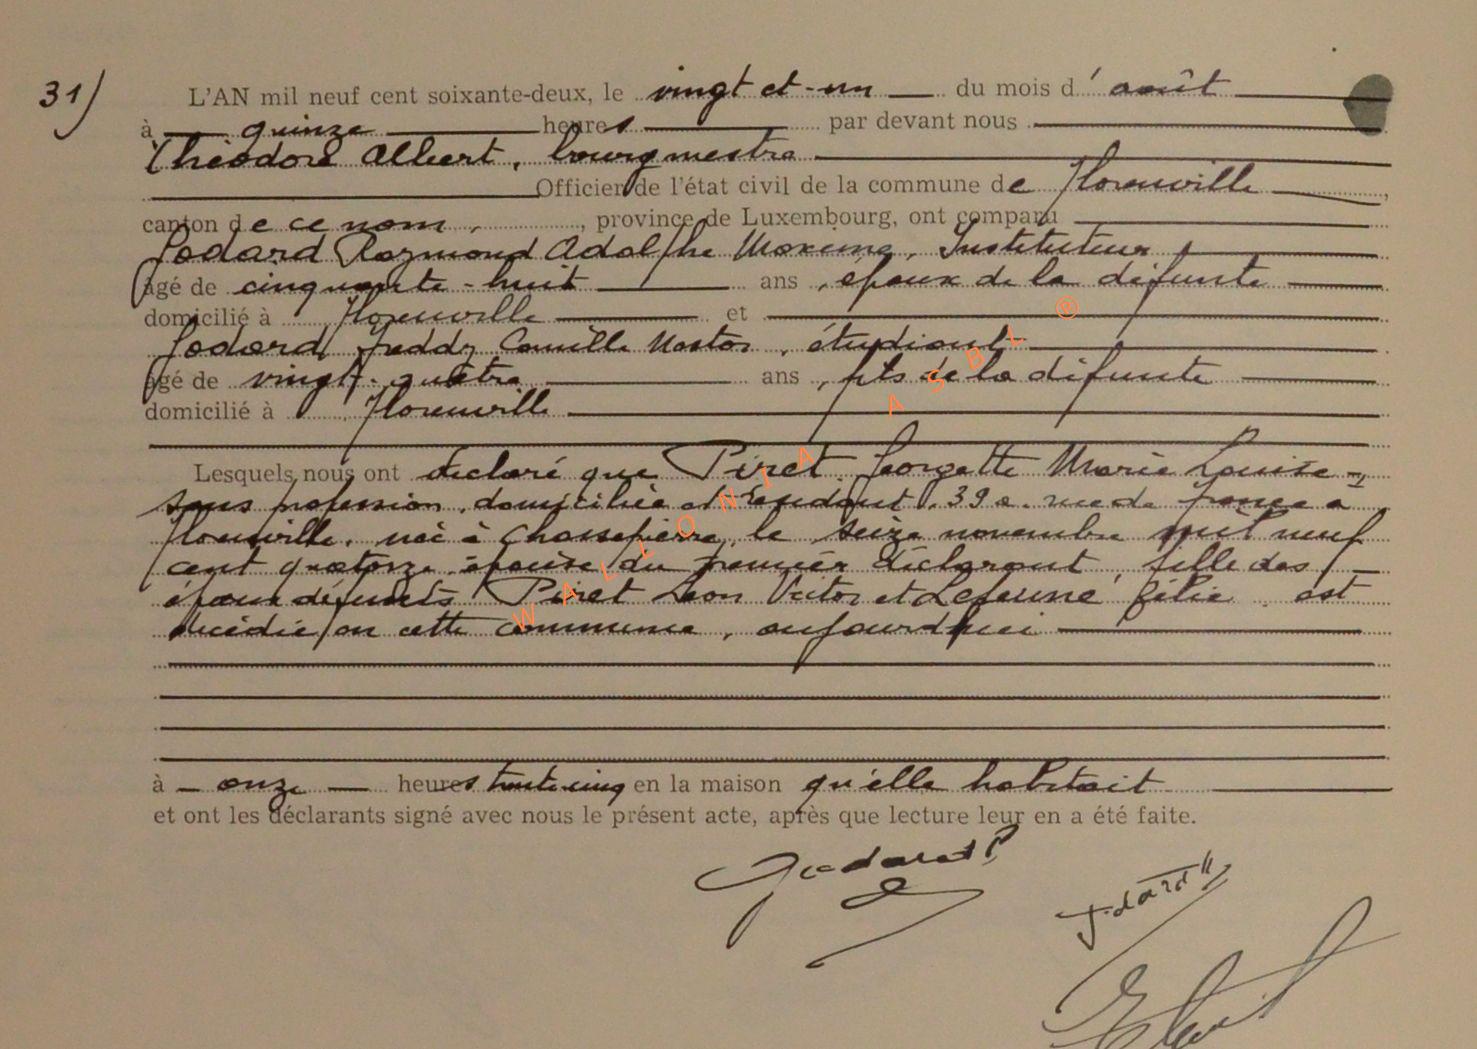 31)
L'AN mil neuf cent soixante-deux, le vingt et-un du mois d' août
à quinze heures par devant nous
Théodore Albert, bourgmestre
Officier de l'état civil de la commune de Florenville,
canton de ce nom, , province de Luxembourg, ont comparu
Godard Raymond Adolphe Maxime, Instituteur,
âgé de cinquante-huit ans, époux de la défunte
domicilié à Florenville et
Godard Freddy Camille Nestor, étudiant
âgé de vingt-quatre ans, fils de la défunte
domicilié à Florenville
Lesquels nous ont déclaré que Piret Georgette Marie Louise -
sans profession, domiciliée et résidant, 39 a. rue de France à
Florenville, née à Chassepierre, le seize novembre mil neuf
cent quatorze, épouse du premier déclarant, fille des
époux défunts Piret Léon Victor et Lejeune Célie est
décédée en cette commune, aujourd'hui
à onze heures trente-cinq en la maison qu'elle habitait
et ont les déclarants signé avec nous le présent acte, après que lecture leur en a été faite.
Godard
WALLONIA ASBL ®